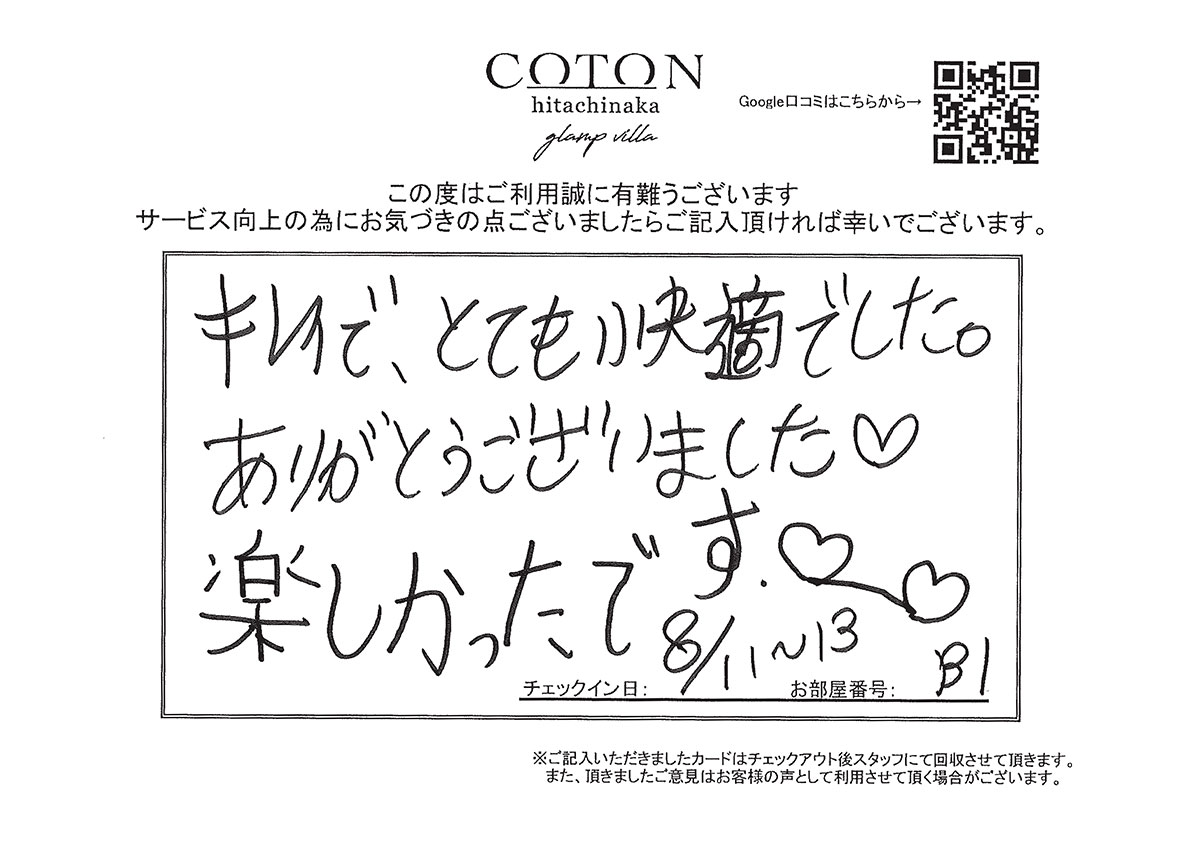 COTON
hitachinaka
glamp villa
Google口コミはこちらから→
この度はご利用誠に有難うございます
サービス向上の為にお気づきの点ございましたらご記入頂ければ幸いでございます。
キレイで、とても快適でした。
ありがとうございました♡
楽しかったです.♡♡
チェックイン日: 8/11~13 お部屋番号: B1
※ご記入いただきましたカードはチェックアウト後スタッフにて回収させて頂きます。
また、頂きましたご意見はお客様の声として利用させて頂く場合がございます。